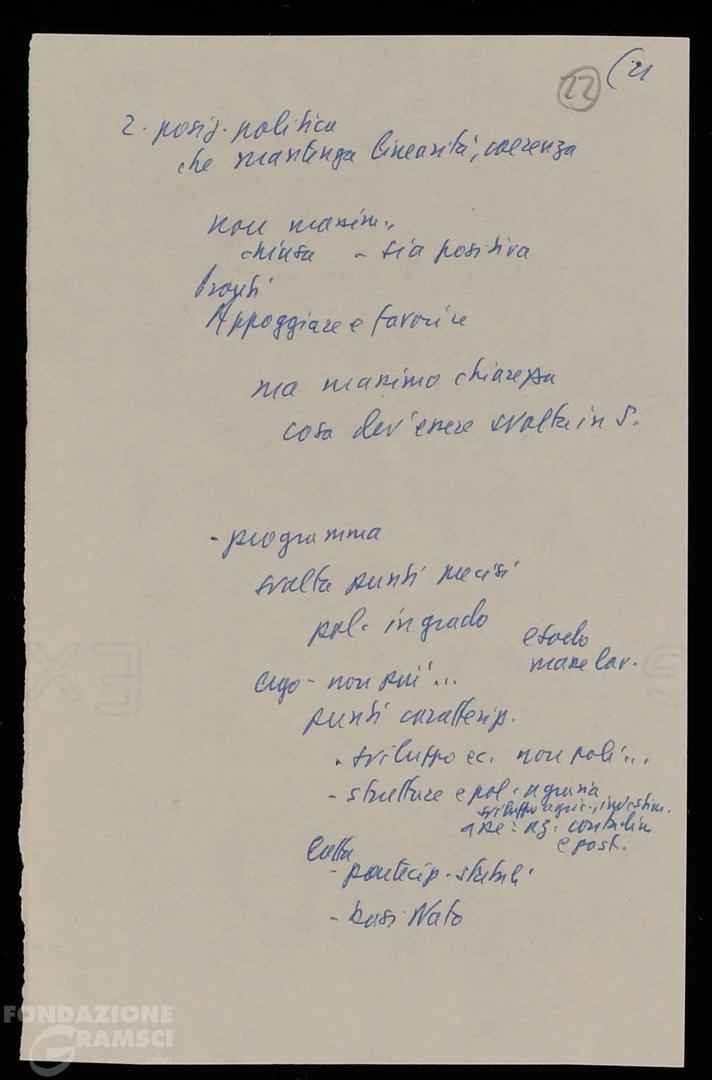 22 (21
2. posiz. politica
che mantenga linearità, coerenza
non massim..
chiusa - sia positiva
Pronti
Appoggiare e favorire
ma massimo chiarezza
cosa dev'essere svolta in S.
- programma
svolta punti precisi
pol. in grado
esodo
masse lav.
non più...
punti caratteriz.
- sviluppo ec. non poli...
- strutture e pol. agraria
sviluppo agric., investim.
az. contadin
e past.
Lotta
- partecip. statali
- basi Nato
FONDAZIONE
GRAMSCI
onlus